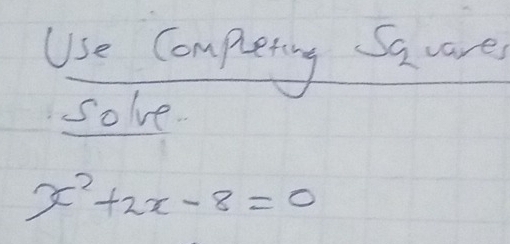 Use Completing Squares
Solve.
x² + 2x - 8 = 0